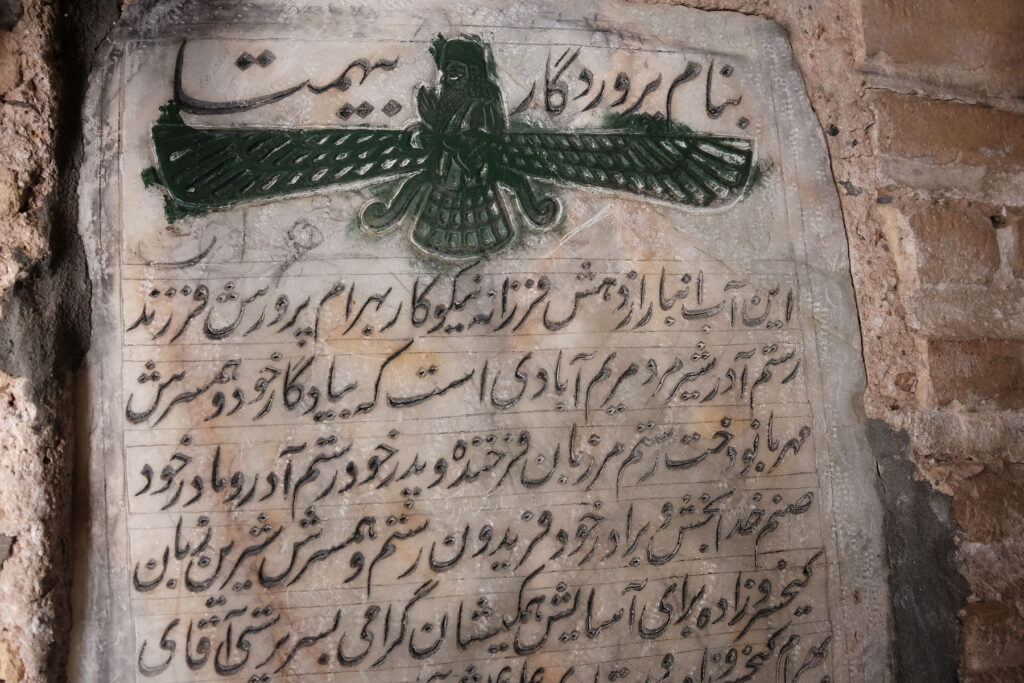 بنام پروردگار بیهمتا
این آب انبار از دهش فرزانه نیکوکار بهرام پرورش فرزند
رستم آذر شیر مرد مریم آبادی است که بیادگار خود و همسرش
مهربانو دخت رستم مرزبان فرخنده و پدر خود رستم آذر و مادر خود
صنم خدابخش و برادر خود فریدون رستم و همسرش شیرین زبان
کیخسرو زاده برای آسایش همکیشان گرامی بسرپرستی آقای
بهرام کیخسرو زاده